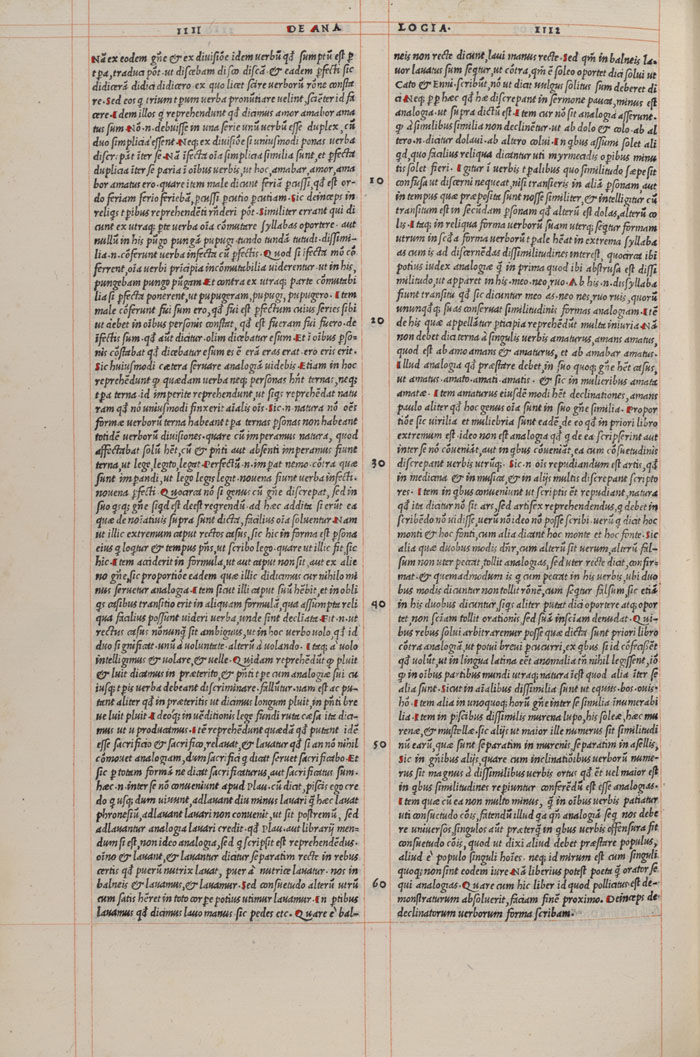 IIII DE ANA LOGIA. IIII
Nā ex eodem gñe & ex diuisiōe idem uerbū qđ sumptū est p
didicerā didici didicero. ex quo licet scire uerborū rōne constā
re. Sed eos q trium tpum uerba pronūtiare uelint, sciēter id fa
cere. Idem illos q reprehendunt qđ dicamus amor amabor ama
tus sum. Nō.n. debuisse in una serie unū uerbū esse duplex, cū
duo simplicia essent. Neq; ex diuisiōe si uniusmodi ponas uerba
discrepāt iter se. Nā ifecta oia simplicia similia sunt, et pfecta
duplicia iter se paria i oibus uerbis, ut hoc, amabar, amor, ama
bor amatus ero. quare itum male dicunt feriā pcussi, qđ est or-
do feriam ferio feriebā, pcussi pcutio pcutiam. Sic deinceps in
cunt ex utraq; pte uerba oia cōmutare syllabas oportere. aut
nullū in his pūgo pungā pupugi. tundo tundā tutudi. dissimi-
lia.n. cōferunt uerba infecta cū pfectis. Quod si ifecta mō cō
ferrent, oia uerbi pricipia incōmutabilia uiderentur. ut in his,
pungebam pungo pūgam. Et contra ex utraq; parte cōmutabi
lia si pfecta ponerent, ut pupugeram, pupugi, pupugero. Item
male cōferunt fui sum ero, qđ fui est pfectum cuius series sibi
ut debet in oibus personis constat, qđ est fueram fui fuero. de
ifectis sum qđ aūt dicitur olim dicebatur esum. Et i oibus pso-
nis cōstabat qđ dicebatur esum es ē erā eras erat. ero eris erit.
Sic huiusmodi cætera seruare analogiā uidebis. Etiam in hoc
reprehendūt q quædam uerba neq; personas hñt ternas, neq;
ram qđ nō uniusmodi finxerit aialis ois. Sic.n. natura nō oēt
formæ uerborū terna habeant tpa ternas psonas non habeant
totidē uerborū diuisiones. quare cū imperamus natura, quod
affectabat solū hēt, cū & pñti aut absenti imperamus fiunt
terna, ut lege, legito, legat. Perfectū.n. impat nemo. cōtra quæ
sunt impandi, ut lego legis legit. nouena fiunt uerba infecti.
nouena pfecti. Quocirca nō si genus cū gñe discrepat, sed in
suo q;q; gñe siqd est deest reqrendū. ad hæc addita si erūt ea
quæ de noiatiuis supra sunt dicta, facilius oia soluentur. Nam
ut illic extremum caput rectos casus, sic hic in forma est psona
eius q loqtur & tempus pñs, ut scribo lego. quare ut illic fit, sic
hic. Item acciderit in formula, ut aut caput non sit, aut ex alie
no gñe, sic proportiōe eadem quæ illic dicidimus cur nihilo mi
nus seruetur analogia. Item sicut illi caput suū hēbit, et in obli
qs casibus transitio erit in aliquam formulā, qua assumpta reli
qua facilius possint uideri uerba, unde sint declinata. Fit.n. ut
rectus casus nōnunq sit ambiguus, ut in hoc uerbo uolo, qđ id
duo significat. unū a uoluntate. alterū a uolando. Itaq; a uolo
intelligimus & uolare, & uelle. Quidam reprehendūt q pluit
& luit dicamus in præterito, & pñti t pe cum analogiæ sui cu
iusq; t pis uerba debeant discriminare. fallūtur. nam est ac pu-
tant aliter qđ in præteritis ut dicimus longum pluit, in pñti bre
ue luit pluit. Ideoq; in uēditionis lege fundi ruta cæsa ita dica-
mus ut u producamus. Itē reprehendūt quædā qđ putant idē
esse sacrifico & sacrifico, relauat, & lauatur qđ si an nō nihil
cōmouet analogiam, dum sacrifici q dicat seruet sacrificabo. Et
sic p totum formā ne dicat sacrificaturus, aut sacrificatus sum.
hæc.n. inter se nō conueniunt apud Plau. cū dicit, piscis ego cre
do q usq; dum uiuunt, adlauant diu minus lauari q hæc lauat
phronesiū, adlauant lauari non conuenit, ut sit postremū, sed
adlauantur analogia lauari credit. qđ Plau. aut librarij men-
dum si est, non ideo analogia, sed q scripsit est reprehendēdus.
oīno & lauant, & lauantur dicitur separatim recte in rebus
certis qđ puerū nutrix lauat, puer a nutrice lauatur. nos in
balneis & lauamus, & lauamur. Sed consuetudo alterū utrū
cum satis hēret in toto corpe potius utimur lauamur. In ptibus
lauamus qđ dicimus lauo manus sic pedes etc. Quare ē bal-
neis non recte dicunt, laui manus recte. Sed qm̄ in balneis la-
uor lauatus sum seqtur, ut cōtra, qm̄ ē soleo oportet dici solui ut
Cato & Enni. scribūt, nō ut dicit uulgus solitus sum deberet di
ci. Neq; pp hæc qđ hæ discrepant in sermone pauca, minus est
analogia. ut supra dictū est. Item cur nō sit analogia asserunt.
q a similibus similia non declinētur. ut ab dolo & colo. ab al
tero.n. dicitur dolaui. ab altero colui. In qbus assumi solet ali
qđ, quo facilius reliqua dicantur uti myrmecidis opibus minu
tis solet fieri. Igitur i uerbis t palibus quo similitudo sæpe sit
confusa ut discerni nequeat, nisi transieris in aliā psonam, aut
in tempus quæ præposita sunt nosse similiter, & intelligitur cū
transitum est in secūdam psonam qđ alterū est dolas, alterū co
lis. Itaq; in reliqua formā uerborū suam uterq; seqtur formam
utrum in scđa forma uerborū t pale hēat in extrema syllaba
as cum is ad discernēdas dissimilitudines interest, quocirca ibi
potius iudex analogiæ q in prima quod ibi abstrusa est dissi
militudo, ut apparet in his. meo. neo, ruo. Ab his.n. dissyllaba
fiunt transitu qđ sic dicuntur meo as. neo nes, ruo ruis, quorū
unūquodq; suas conseruat similitudinis formas analogiam. Et
de his quæ appellātur pticipia reprehēdūt multa iniuria. Nā
non debet dici terna a singulis uerbis amaturus, amans amatus,
quod est ab amo amans & amaturus, et ab amabar amatus.
Illud analogia qđ præstare debet, in suo quoq; gñe hēt casus,
ut amatus. amato. amati. amatis. & sic in mulieribus amata
amatæ. Item amaturus eiusdē modi hēt declinationes, amans
paulo aliter qđ hoc genus oia sunt in suo gñe similia. Propor
tiōe sic uirilia et muliebria sunt eadē, de eo qđ in priori libro
extremum est ideo non est analogia qđ q de ea scripserint aut
inter se nō cōueniāt, aut in qbus cōueniāt, ea cum cōsuetudinis
discrepant uerbis utrūq;. Sic.n. ois repudiandum est artis, qđ
in medicina & in musica, & in alijs multis discrepant scripto
res. Item in qbus conueniunt ut scriptis ēt repudiant, natura
qđ ita dicitur nō sit ars, sed artifex reprehendendus, q debet in
scribēdo nō uidisse, uerū nō ideo nō posse scribi. uerū q dicit hoc
monti & hoc fonti, cum alia dicant hoc monte et hoc fonte. Sic
alia quæ duobus modis dñr, cum alterū sit uerum, alterū fal-
sum non uter peccat, tollit analogias, sed uter recte dicit, confir-
mat. & quemadmodum is q cum peccat in his uerbis, ubi duo
bus modis dicuntur non tollit rōnē, cum seqtur falsum sic etiā
in his duobus dicuntur, siqs aliter putat dici oportere atq; opor
tet, non sciam tollit orationis sed suā insciam denudat. Qui-
bus rebus solui arbitraremur posse quæ dicta sunt priori libro
cōtra analogiā, ut potui breui pcucurri, ex qbus. si id cōfecissēt
qđ uolūt, ut in lingua latina eēt anomalia tñ nihil legissent, iō
q in oibus partibus mundi utraq; natura iest quod alia iter se
alia sunt. Sicut in aialibus dissimilia sunt ut equus. bos. ouis.
hō. Item alia in unoquoq; horū gñe inter se similia inumerabi
lia. Item in piscibus dissimilis murena lupo, his soleæ, hæc mu
renæ, & mustellæ. sic alijs ut maior ille numerus sit similitudi
nū earū, quæ sunt separatim in murenis, separatim in asellis,
Sic in gñibus alijs, quare cum inclinationibus uerborū nume-
rus sit magnus a dissimilibus uerbis ortus qđ ēt uel maior est
in qbus similitudines repiuntur conferēdū est esse analogias.
Item quæ cū ea non multo minus, q in oibus uerbis patiatur
uti consuetudo cōis, fatendū illud qa qñ analogiā seq nos debe
re uniuersos singulos aūt præterq in qbus uerbis offensura sit
consuetudo cōis, quod ut dixi aliud debet præstare populus,
aliud ē populo singuli hoies. neq; id mirum est cum singuli
quoq; non sint eodem iure. Nā liberius potest poeta q orator se
qui analogias. Quare cum hic liber id quod pollicitus est de-
monstraturum absoluerit, faciam finē proximo. Deinceps de
declinatorum uerborum forma scribam.
10
20
30
40
50
60